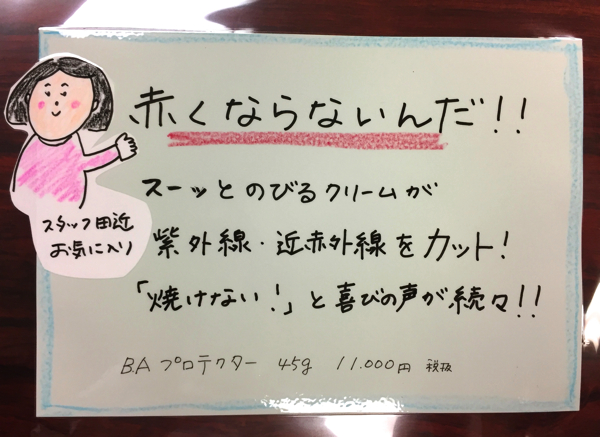 赤くならないんだ!!
スーッとのびるクリームが
紫外線・近赤外線をカット!
「焼けない!」と喜びの声が続々!!
B.A プロテクター 45g 11.000円 税抜
スタッフ田近
お気に入り